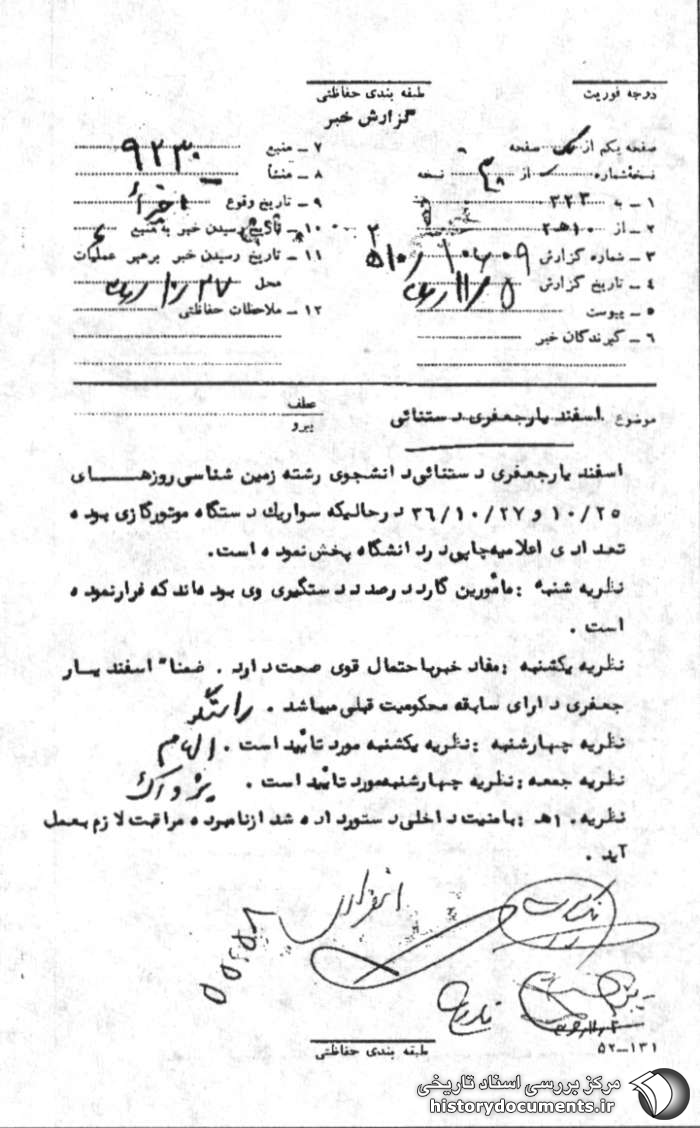 درجه فوریت
طبقه بندی حفاظتی
گزارش خبر
صفحه یکم از یک صفحه
نسخه شماره از ۳ نسخه
۱ ـ به ۳۲۳
۲ ـ از ۱۰هـ۲
۳ ـ شماره گزارش
۴ ـ تاریخ گزارش
۵ ـ پیوست
۶ ـ گیرندگان خبر
۷ ـ منبع ۹۲۳۰
۸ ـ منشأ
۹ ـ تاریخ وقوع اخیراً
۱۰ ـ تاریخ رسیدن خبر به منبع
۱۱ ـ تاریخ رسیدن خبر برهبر عملیات
محل
۱۲ ـ ملاحظات حفاظتی
موضوع اسفند یارجعفری دستنائی
عطف
پیرو
اسفند یارجعفری دستنائی دانشجوی رشته زمین شناسی روزهای
۱۰/۲۵ و ۳۶/۱۰/۲۷ درحالیکه سواریک دستگاه موتورگازی بوده
تعدادی اعلامیه چاپی درد انشگاه پخش نموده است.
نظریه شنبه : مأمورین گارد درصدد دستگیری وی بوده اند که فرارنموده
است .
نظریه یکشنبه : مفاد خبرباحتمال قوی صحت دارد . ضمنا" اسفند یار
جعفری دارای سابقه محکومیت قبلی میباشد . راستگر
نظریه چهارشنبه : نظریه یکشنبه مورد تائید است . الهام
نظریه جمعه : نظریه چهارشنبه مورد تائید است . پژواک
نظریه ۱۰هـ : بامنیت داخلی دستورداده شد ازنامبرده مراقبت لازم بعمل
آید .
طبقه بندی حفاظتی
۵۲ــ۱۳۱
مرکز بررسی اسناد تاریخی
historydocuments.ir